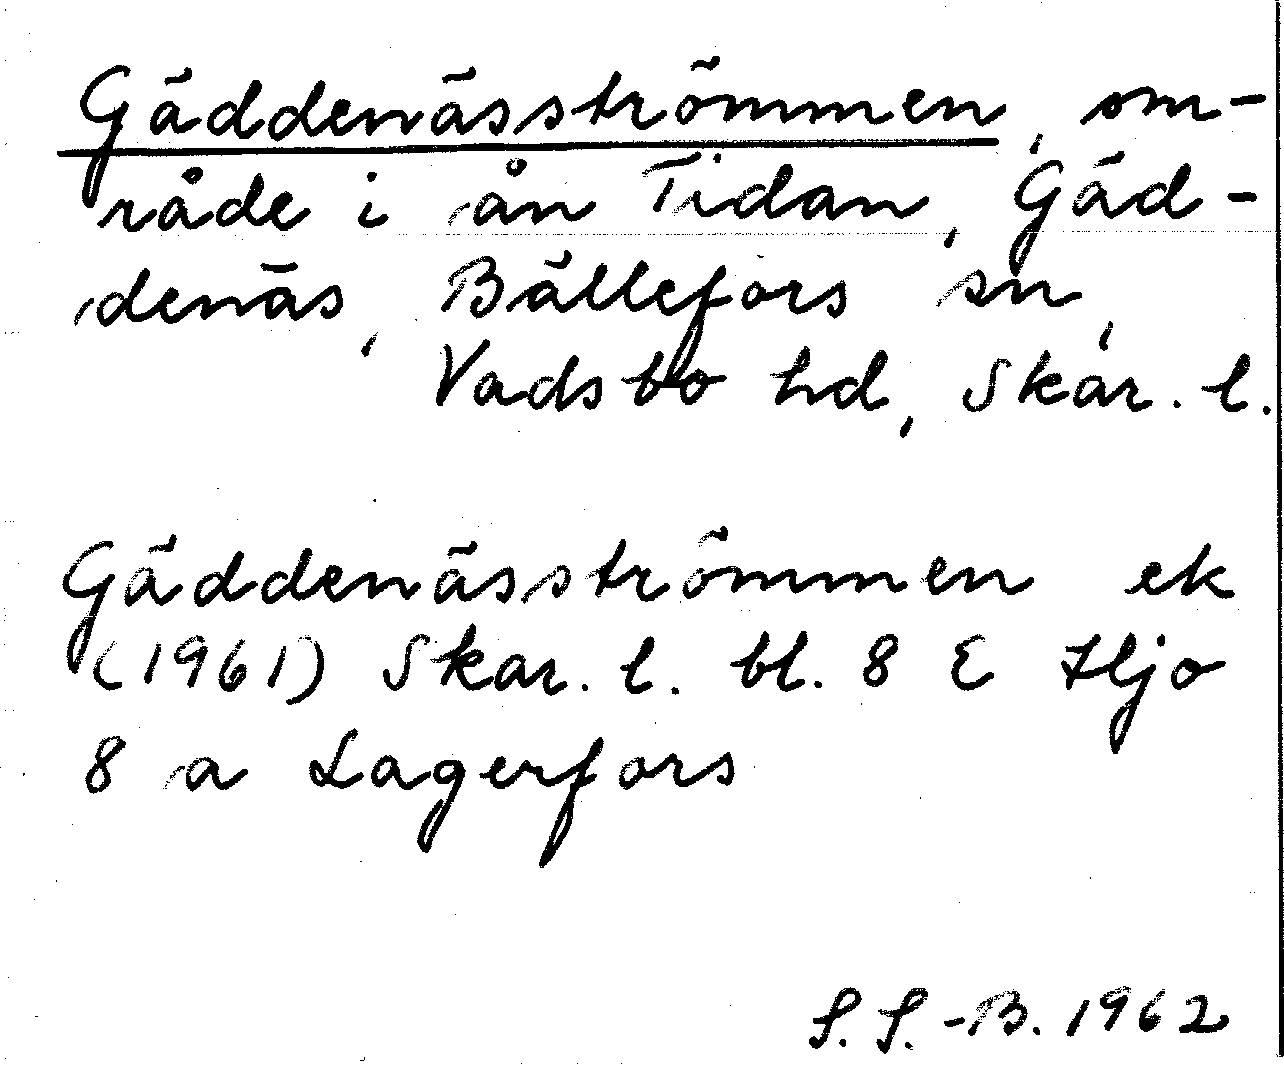 Gäddenäsströmmen, om-
råde i ån Tidan, Gäd-
denäs, Bällefors sn,
Vadsbo hd, Skar. l.
Gäddenäsströmmen ek
(1961) Skar. l. bl. 8 E Hjo
8 a Lagerfors
S. S.-B. 1962